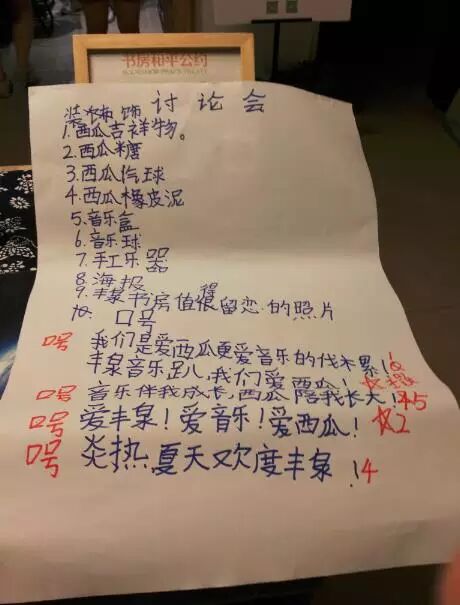 书房和平公约
装饰 讨论会
1.西瓜吉祥物。
2.西瓜糖
3.西瓜汽球
4.西瓜橡皮泥
5.音乐盒
6.音乐球
7.手工乐器
8.海报
9.丰泉书房值得很留恋的照片
10.口号
口号 我们是爱西瓜更爱音乐的伐木累!
丰泉音乐趴儿,我们爱西瓜!
口号 音乐伴我成长,西瓜陪我长大! 5
口号 爱丰泉!爱音乐!爱西瓜! 2
口号 炎热夏天欢度丰泉!4